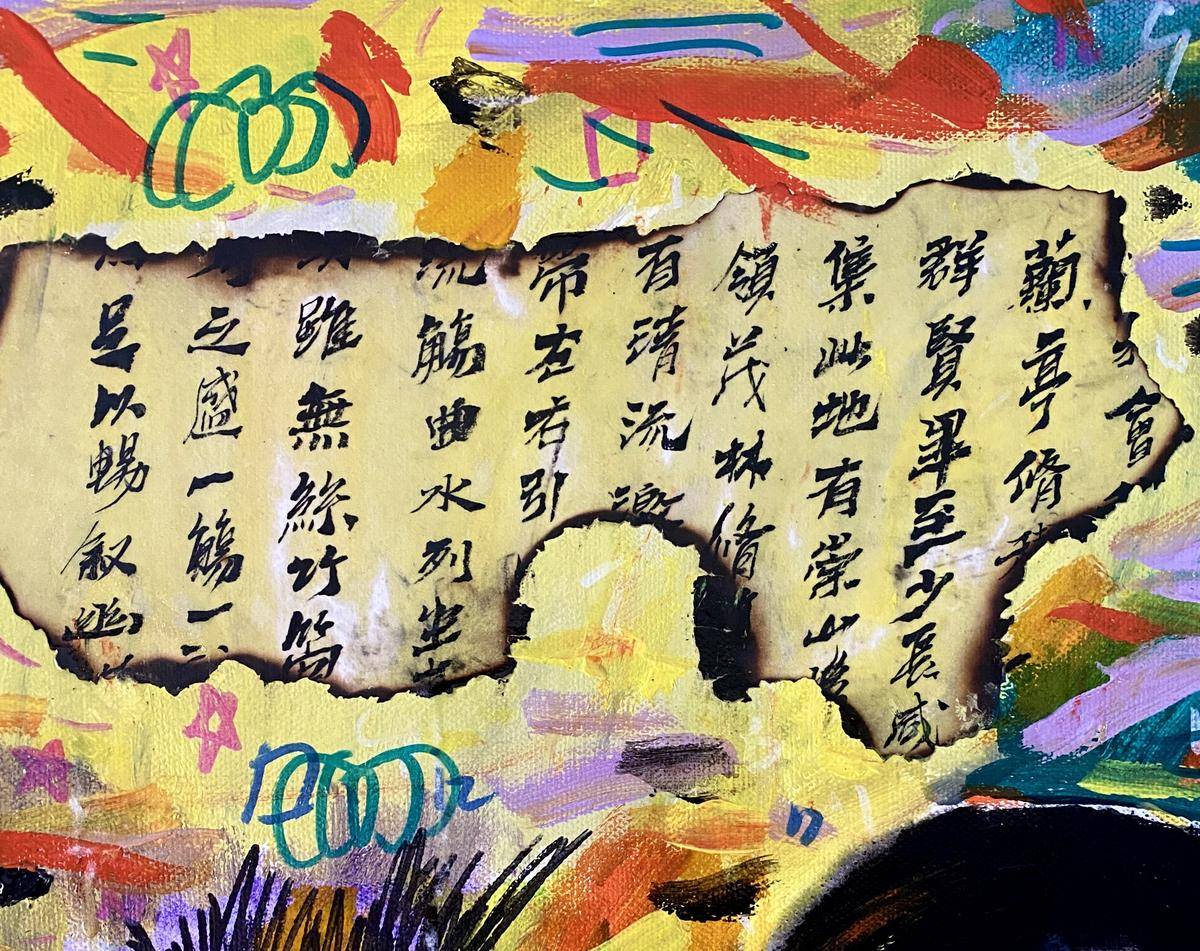 會
蘭亭脩
群賢畢至少長咸
集此地有崇山峻
領茂林脩
有清流激
帶左右引
流觴曲水列坐
雖無絲竹管
之盛一觴一
足以暢叙幽